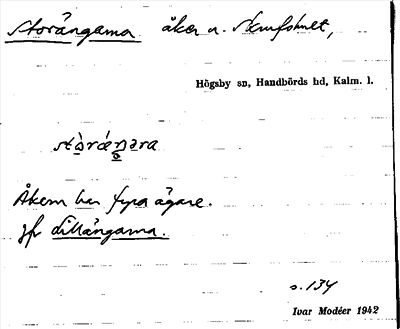 Storängarna åker n.
Högsby sn, Handbörds hd, Kalm. l.
Åkern har fyra ägare.
jfr Lillängarna.
s. 134
Ivar Modéer 1942